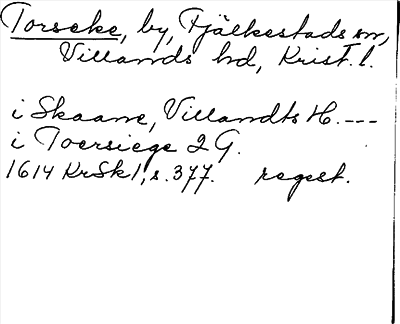 Torseke, by, Fjälkestads sn,
Villands hd, Krist. l.
i Skaane, Villandts H. ---
i Toersiege 2 G.
1614 KrSk 1, s. 377. regest.